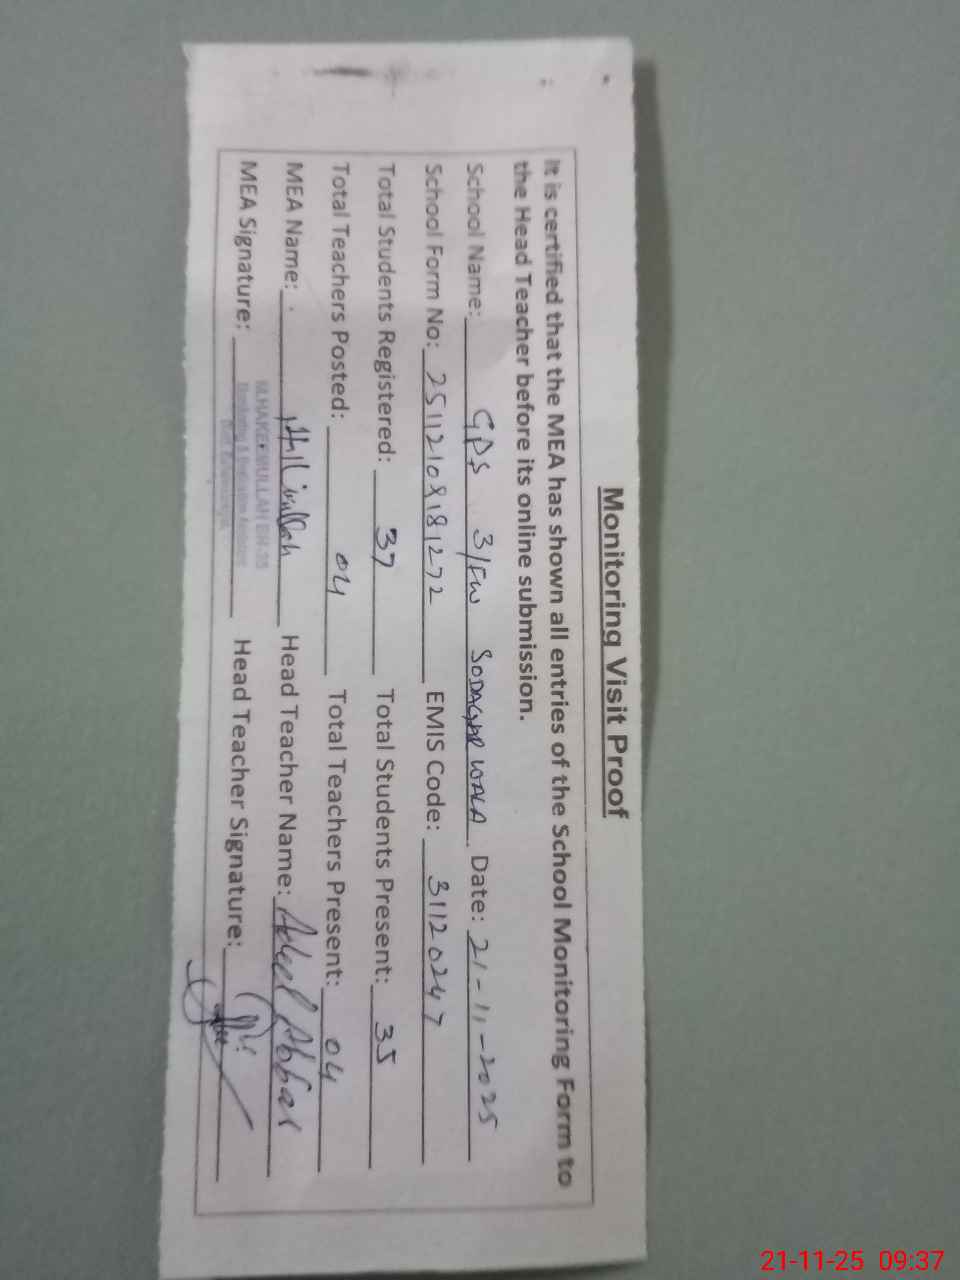 Monitoring Visit Proof
It is certified that the MEA has shown all entries of the School Monitoring Form to
the Head Teacher before its online submission.
School Name: GPS 3/FW SODAGAR WALA Date: 21-11-2025
School Form No: 25112108181272 EMIS Code: 31120247
Total Students Registered: 37 Total Students Present: 35
Total Teachers Posted: 04 Total Teachers Present: 04
MEA Name: Head Teacher Name: Adeel Abbas
MEA Signature: Head Teacher Signature:
M.HAKEEMULLAH
Monitoring & Evaluation Assistant
21-11-25 09:37